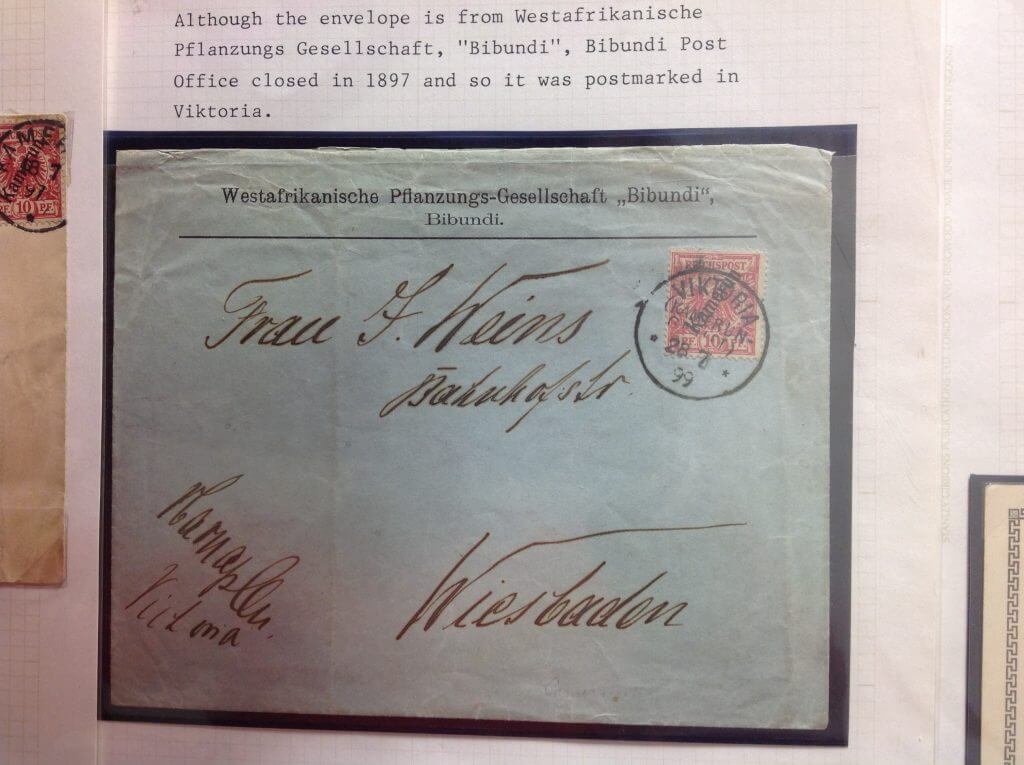 Although the envelope is from Westafrikanische
Pflanzungs Gesellschaft, "Bibundi", Bibundi Post
Office closed in 1897 and so it was postmarked in
Viktoria.
Westafrikanische Pflanzungs-Gesellschaft „Bibundi“,
Bibundi.
REICHSPOST
VIKTORIA
KAMERUN
Kamerun
10
28 7
99
Frau J. Weins
Bahnhofstr.
Wiesbaden
Victoria
10 PF